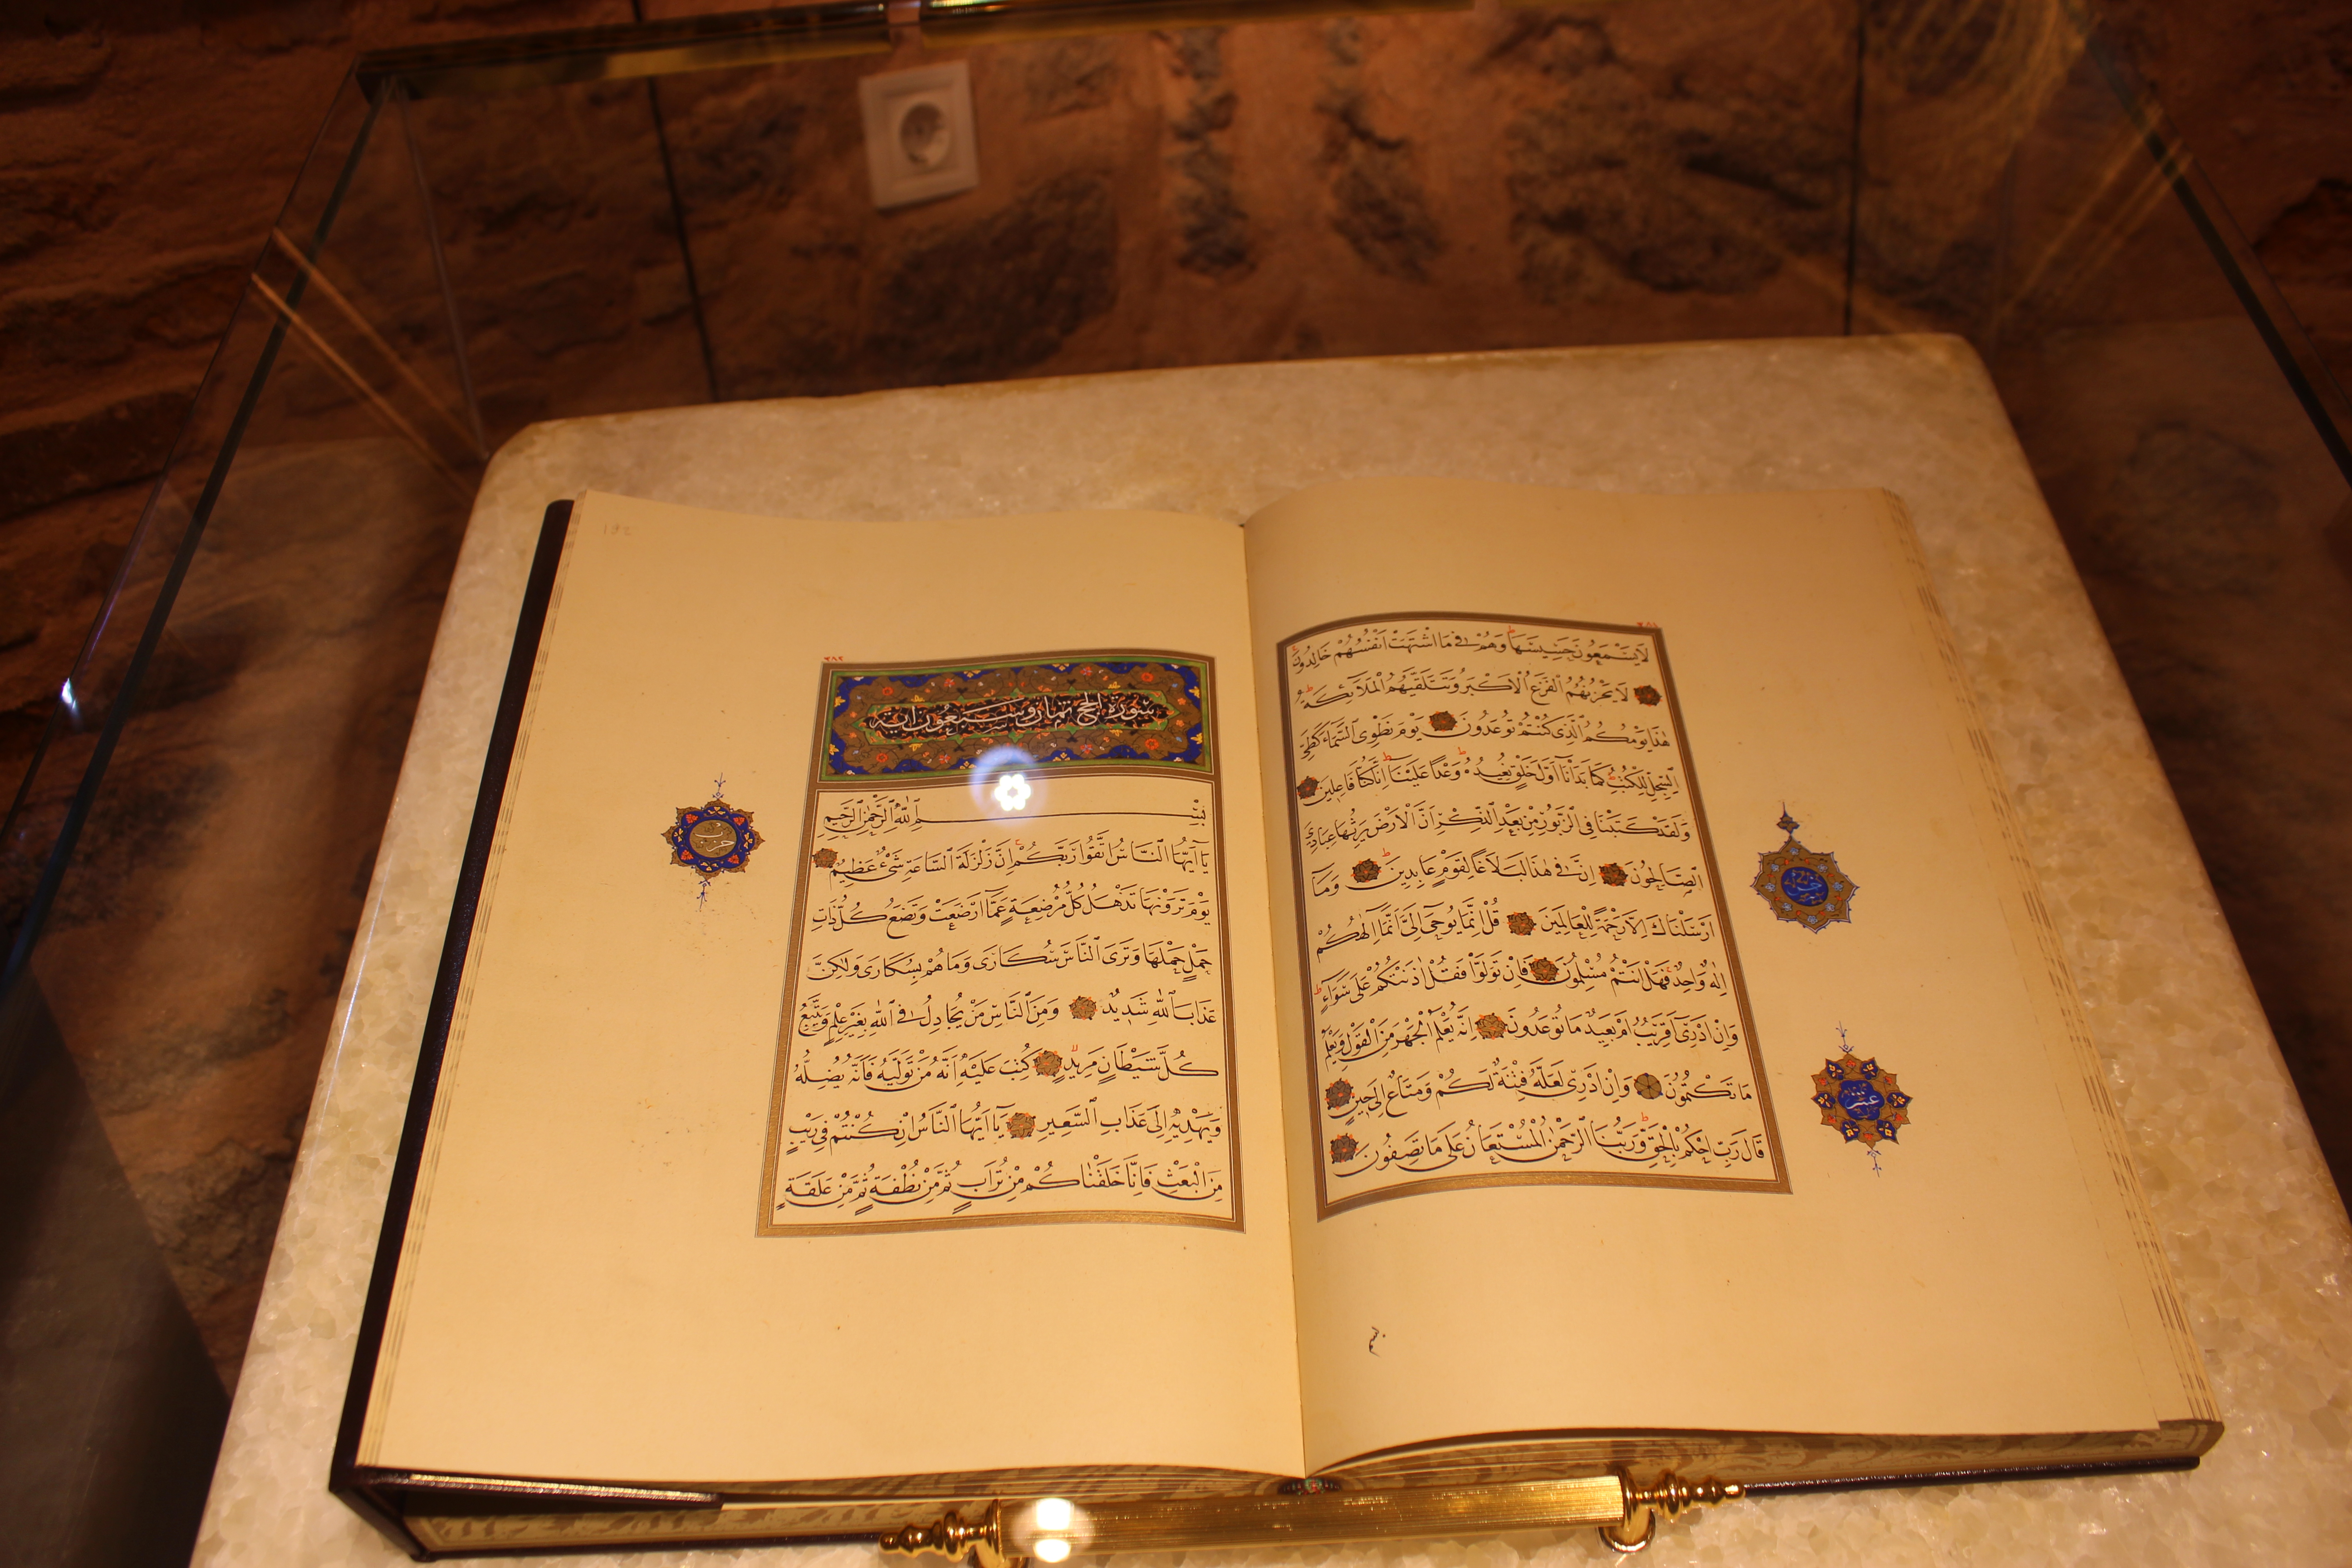 لَا يَسْمَعُونَ حَسِيسَهَا وَهُمْ فِي مَا اشْتَهَتْ اَنْفُسُهُمْ خَالِدُونَ
لَا يَحْزُنُهُمُ الْفَزَعُ الْاَكْبَرُ وَتَتَلَقّٰيهُمُ الْمَلٰٓئِكَةُ
هٰذَا يَوْمُكُمُ الَّذِي كُنْتُمْ تُوعَدُونَ يَوْمَ نَطْوِي السَّمَاءَ كَطَيِّ
السِّجِلِّ لِلْكُتُبِ كَمَا بَدَأْنَا اَوَّلَ خَلْقٍ نُعِيدُهُ وَعْدًا عَلَيْنَا اِنَّا كُنَّا فَاعِلِينَ
وَلَقَدْ كَتَبْنَا فِي الزَّبُورِ مِنْ بَعْدِ الذِّكْرِ اَنَّ الْاَرْضَ يَرِثُهَا عِبَادِيَ
الصَّالِحُونَ اِنَّ فِي هٰذَا لَبَلَاغًا لِقَوْمٍ عَابِدِينَ وَمَا
اَرْسَلْنَاكَ اِلَّا رَحْمَةً لِلْعَالَمِينَ قُلْ اِنَّمَا يُوحٰى اِلَيَّ اَنَّمَا اِلٰهُكُمْ
اِلٰهٌ وَاحِدٌ فَهَلْ اَنْتُمْ مُسْلِمُونَ فَاِنْ تَوَلَّوْا فَقُلْ اٰذَنْتُكُمْ عَلٰى سَوَاءٍ
وَاِنْ اَدْرِي اَقَرِيبٌ اَمْ بَعِيدٌ مَا تُوعَدُونَ اِنَّهُ يَعْلَمُ الْجَهْرَ مِنَ الْقَوْلِ وَيَعْلَمُ
مَا تَكْتُمُونَ وَاِنْ اَدْرِي لَعَلَّهُ فِتْنَةٌ لَكُمْ وَمَتَاعٌ اِلٰى حِينٍ
قَالَ رَبِّ احْكُمْ بِالْحَقِّ وَرَبُّنَا الرَّحْمٰنُ الْمُسْتَعَانُ عَلٰى مَا تَصِفُونَ
عشر
٢٨٢
سورة الحج ثمان وسبعون اية
بِسْمِ اللّٰهِ الرَّحْمٰنِ الرَّحِيمِ
يَا اَيُّهَا النَّاسُ اتَّقُوا رَبَّكُمْ اِنَّ زَلْزَلَةَ السَّاعَةِ شَيْءٌ عَظِيمٌ
يَوْمَ تَرَوْنَهَا تَذْهَلُ كُلُّ مُرْضِعَةٍ عَمَّا اَرْضَعَتْ وَتَضَعُ كُلُّ ذَاتِ
حَمْلٍ حَمْلَهَا وَتَرَى النَّاسَ سُكَارٰى وَمَا هُمْ بِسُكَارٰى وَلٰكِنَّ
عَذَابَ اللّٰهِ شَدِيدٌ وَمِنَ النَّاسِ مَنْ يُجَادِلُ فِي اللّٰهِ بِغَيْرِ عِلْمٍ وَيَتَّبِعُ
كُلَّ شَيْطَانٍ مَرِيدٍ كُتِبَ عَلَيْهِ اَنَّهُ مَنْ تَوَلَّاهُ فَاَنَّهُ يُضِلُّهُ
وَيَهْدِيهِ اِلٰى عَذَابِ السَّعِيرِ يَا اَيُّهَا النَّاسُ اِنْ كُنْتُمْ فِي رَيْبٍ
مِنَ الْبَعْثِ فَاِنَّا خَلَقْنَاكُمْ مِنْ تُرَابٍ ثُمَّ مِنْ نُطْفَةٍ ثُمَّ مِنْ عَلَقَةٍ
حزب